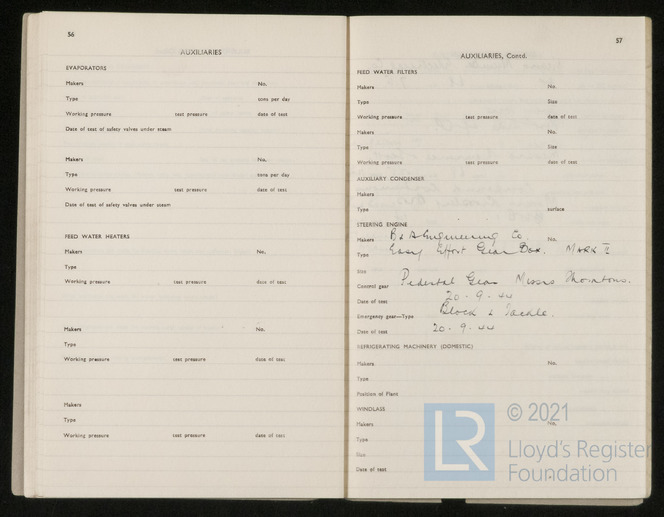 56
AUXILIARIES
EVAPORATORS
Makers No.
Type tons per day
Working pressure test pressure date of test
Date of test of safety valves under steam
Makers No.
Type tons per day
Working pressure test pressure date of test
Date of test of safety valves under steam
FEED WATER HEATERS
Makers No.
Type
Working pressure test pressure date of test
Makers No.
Type
Working pressure test pressure date of test
Makers
Type
Working pressure test pressure date of test
57
AUXILIARIES, Contd.
FEED WATER FILTERS
Makers No.
Type Size
Working pressure test pressure date of test
Makers No.
Type Size
Working pressure test pressure date of test
AUXILIARY CONDENSER
Makers
Type surface
STEERING ENGINE
Makers B & A Engineering Co. No.
Type Easy Effort Gear Box. MARK II
Size
Control gear Pedestal Gear Messrs Thorntons.
Date of test 20 - 9 - 44
Emergency gear—Type Block & Tackle.
Date of test 20 - 9 - 44
REFRIGERATING MACHINERY (DOMESTIC)
Makers No.
Type
Position of Plant
WINDLASS
Makers No.
Type
Size
Date of test
LR © 2021
Lloyd's Register
Foundation